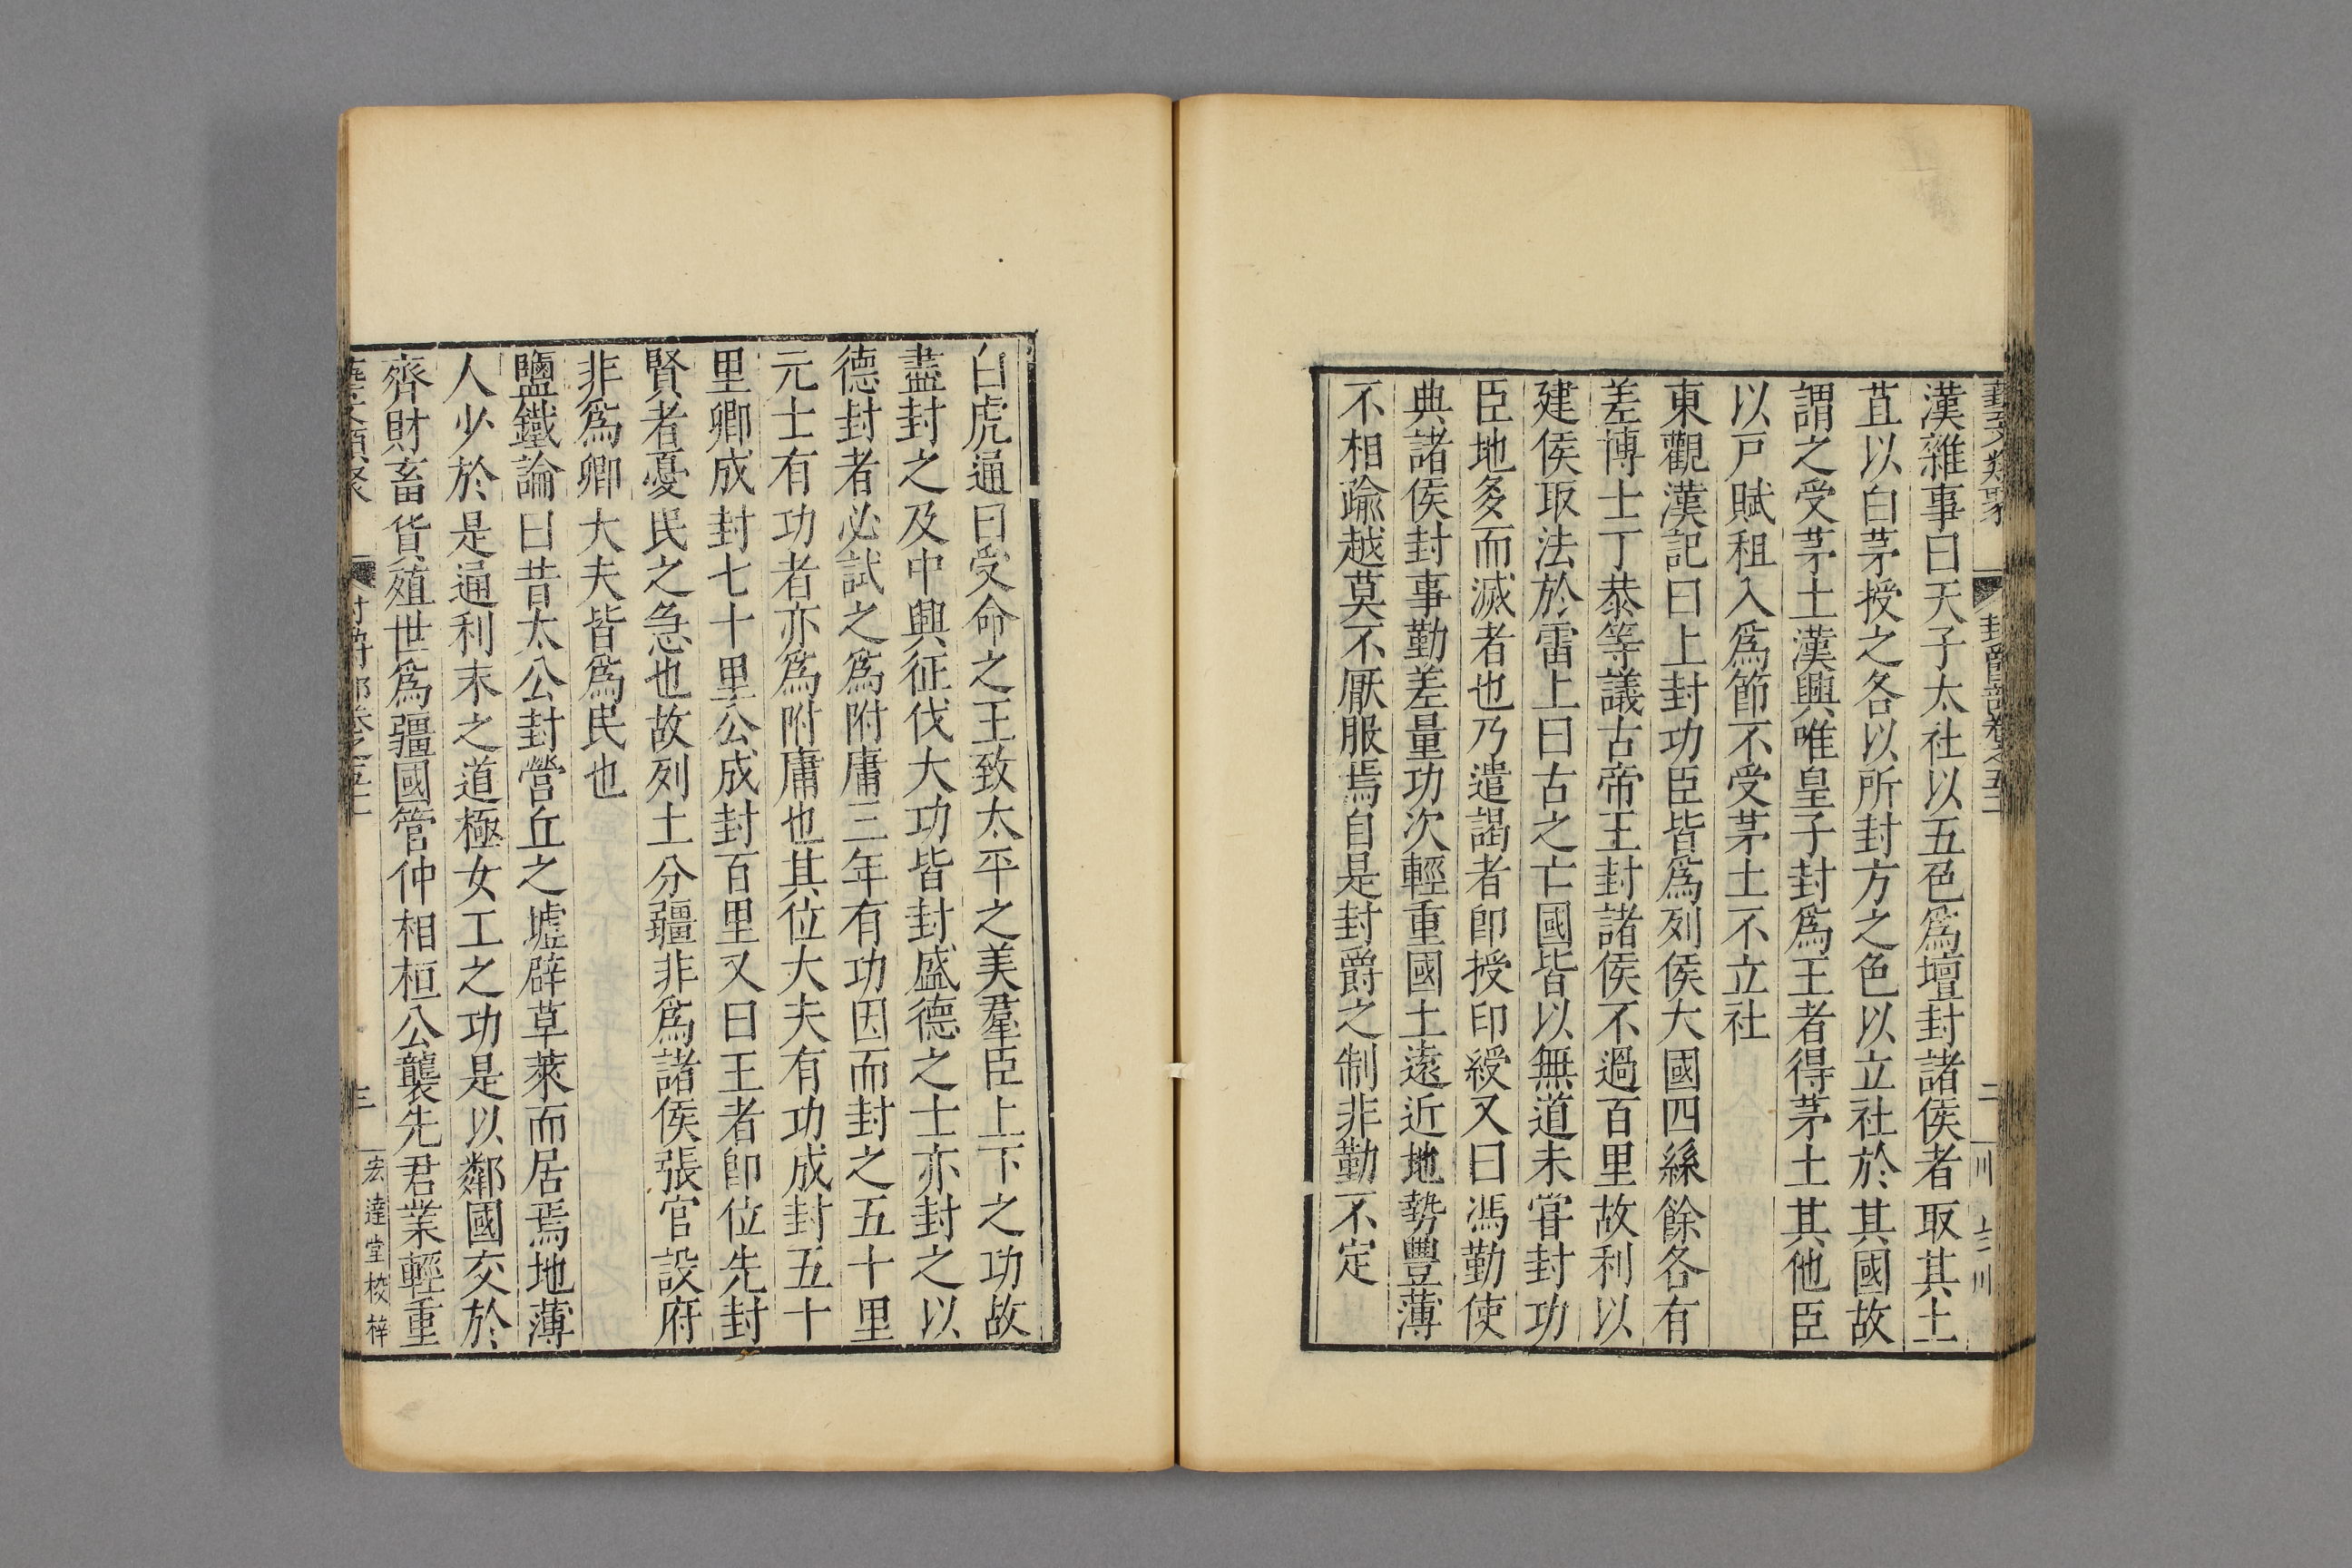 藝文類聚 封爵部卷之五十一 二
漢雜事曰天子太社以五色爲壇封諸侯者取其土
苴以白茅授之各以所封方之色以立社於其國故
謂之受茅土漢興唯皇子封爲王者得茅土其他臣
以戶賦租入爲節不受茅土不立社
東觀漢記曰上封功臣皆爲列侯大國四縣餘各有
差博士丁恭等議古帝王封諸侯不過百里故利以
建侯取法於雷上曰古之亡國皆以無道未甞封功
臣地多而滅者也乃遣謁者卽授印綬又曰馮勤使
典諸侯封事勤差量功次輕重國土遠近地勢豐薄
不相踰越莫不厭服焉自是封爵之制非勤不定
白虎通曰受命之王致太平之美羣臣上下之功故
盡封之及中興征伐大功皆封盛德之士亦封之以
德封者必試之爲附庸三年有功因而封之五十里
元士有功者亦爲附庸也其位大夫有功成封五十
里卿成封七十里公成封百里又曰王者卽位先封
賢者憂民之急也故列土分疆非爲諸侯張官設府
非爲卿大夫皆爲民也
鹽鐵論曰昔太公封營丘之墟辟草萊而居焉地薄
人少於是通利末之道極女工之功是以鄰國交於
齊財畜貨殖世爲疆國管仲相桓公襲先君業輕重
藝文類聚 封爵部卷之五十一 三 宏達堂校梓